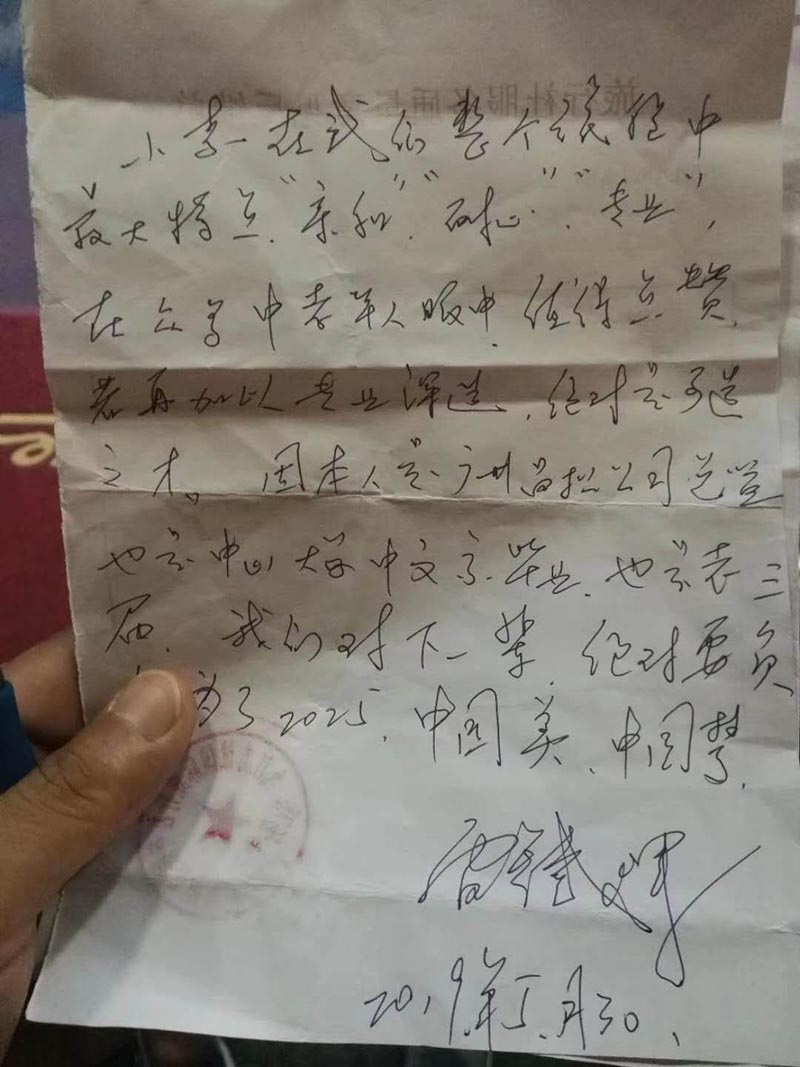 小李在我们整个旅程中
最大特点“亲和”、“耐心”、“专业”，
在众多中老年人眼中，值得点赞，
若再加以专业深造，绝对是可造
之才。因本人是广州 公司
也是中山大学中文系毕业，也是老三
届，我们对下一辈，绝对要负
为了2025，中国美、中国梦，
2019年5月30、